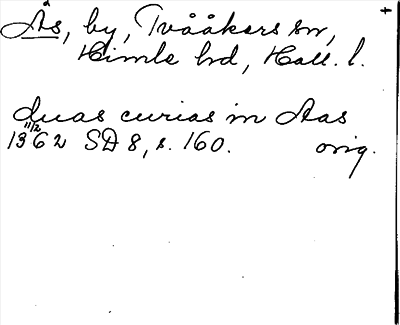 Ås, by, Tvååkers sn,
Himle hd, Hall. l.
duas curias in Aas
1362 11/2 SD 8, s. 160. orig.